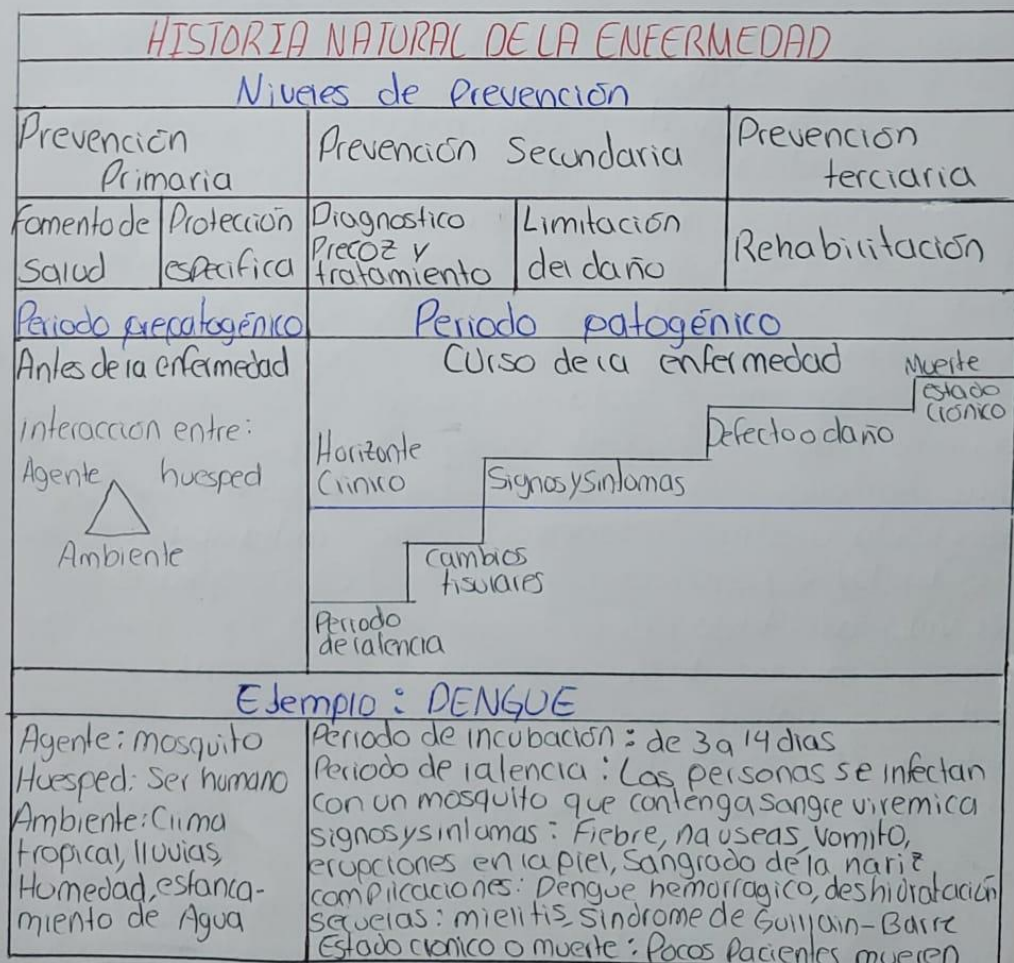 HISTORIA NATURAL DE LA ENFERMEDAD
Niveles de Prevención
Prevención
Primaria
Prevención Secundaria
Prevención
terciaria
Fomento de
Salud
Protección
especifica
Diagnostico
Precoz y
tratamiento
Limitación
del daño
Rehabilitación
Periodo prepatogénico
Periodo patogénico
Antes de la enfermedad
interaccion entre:
Agente huesped
Ambiente
Curso de la enfermedad
Muerte
estado
crónico
Defecto o daño
Horizonte
Clinico
Signos y sintomas
Cambios
tisulares
Periodo
de latencia
Ejemplo: DENGUE
Agente: mosquito
Huesped: Ser humano
Ambiente: Clima
tropical, lluvias,
Humedad, estanca-
miento de Agua
Periodo de incubación: de 3 a 14 dias
Periodo de latencia: Las personas se infectan
con un mosquito que contenga sangre viremica
signos y sintomas: Fiebre, nauseas, vomito,
erupciones en la piel, Sangrado de la nariz
complicaciones: Dengue hemorragico, deshidratación
secuelas: mielitis, sindrome de Guillain-Barre
Estado cronico o muerte: Pocos Pacientes mueren